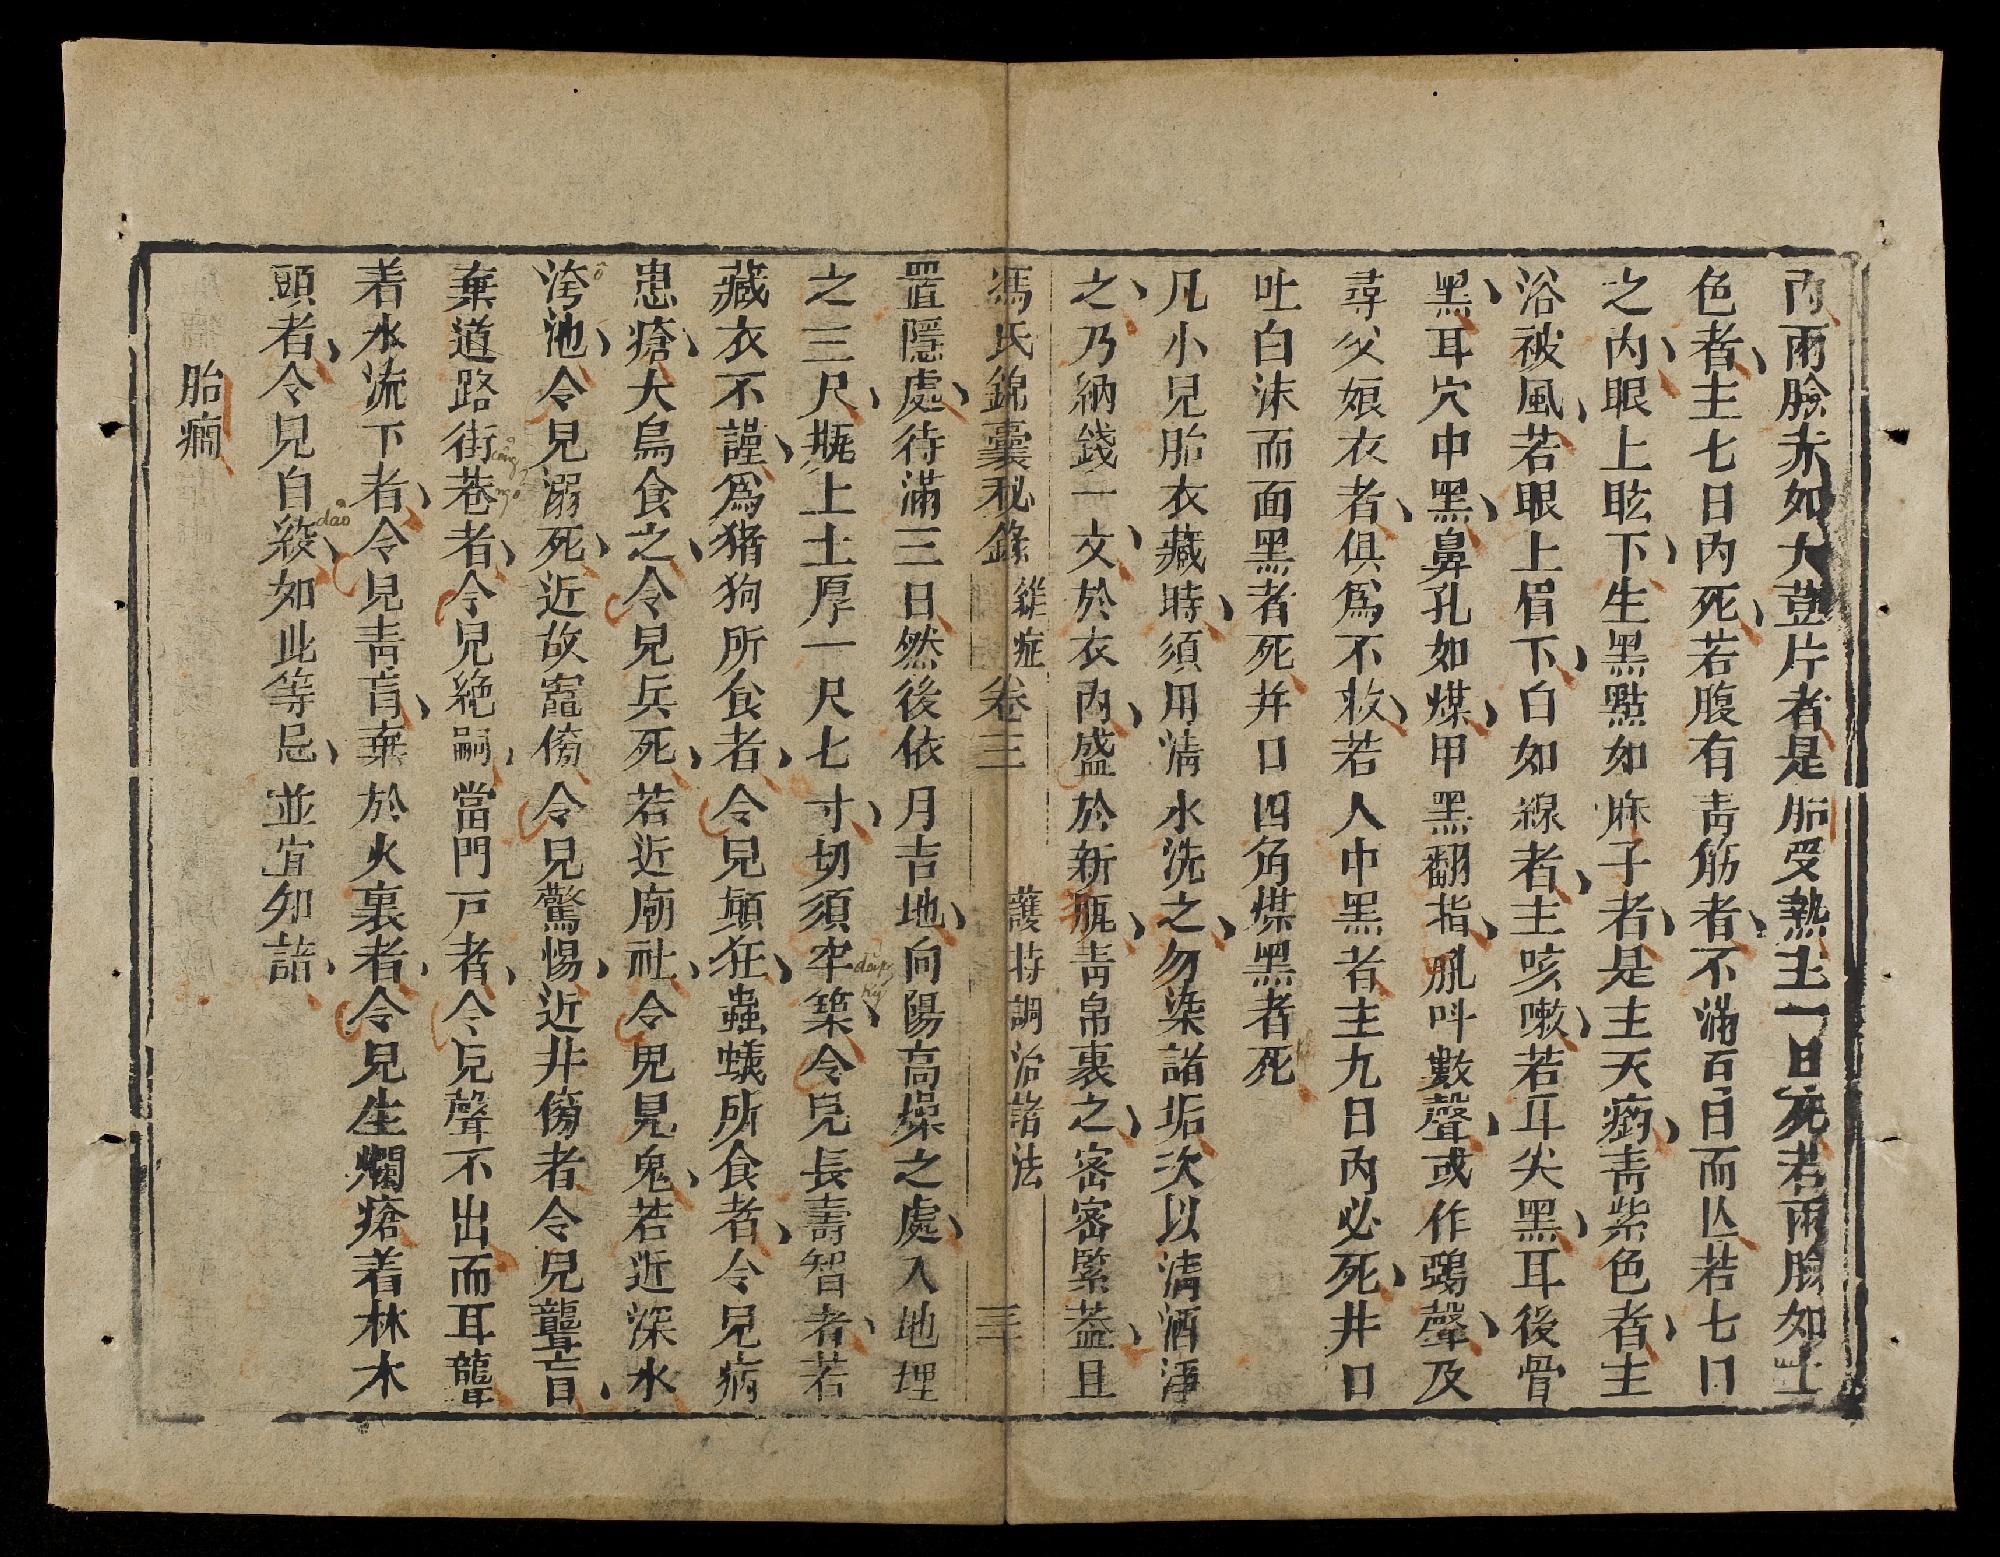 內兩臉赤如大荳片者是胎受熱主一日死若兩臉如土
色者主七日內死若腹有青筋者不滿百日而亾若七日
之內眼上眩下生黑點如麻子者是主天癇青紫色者主
浴被風若眼上眉下白如線者主咳嗽若耳尖黑耳後骨
黑耳穴中黑鼻孔如煤甲黑翻指吼呌數聲或作鵶聲及
尋父娘衣者俱爲不救若人中黑者主九日內必死井口
吐白沫而面黑者死井口四角煤黑者死
凡小兒胎衣藏時須用清水洗之勿染諸垢次以清酒淨
之乃納錢一文於衣內盛於新瓶青帛裹之密密緊葢且
馮氏錦囊秘錄 雜症 卷三 護持調治諸法 三十
置隱處待滿三日然後依月吉地向陽高燥之處入地埋
之三尺瓶上土厚一尺七寸切須牢築令兒長壽智者若
藏衣不謹爲猪狗所食者令兒顛狂蟲蟻所食者令兒病
患瘡犬鳥食之令兒兵死若近廟社令兒見鬼若近深水
洿池令兒溺死近故竈傍令兒驚惕近井傍者令兒聾盲
棄道路街巷者令兒絶嗣當門戸者令兒聲不出而耳聾
着水流下者令兒青盲棄於火裏者令兒生爛瘡着林木
頭者令兒自絞如此等忌並宜知諳
胎癇